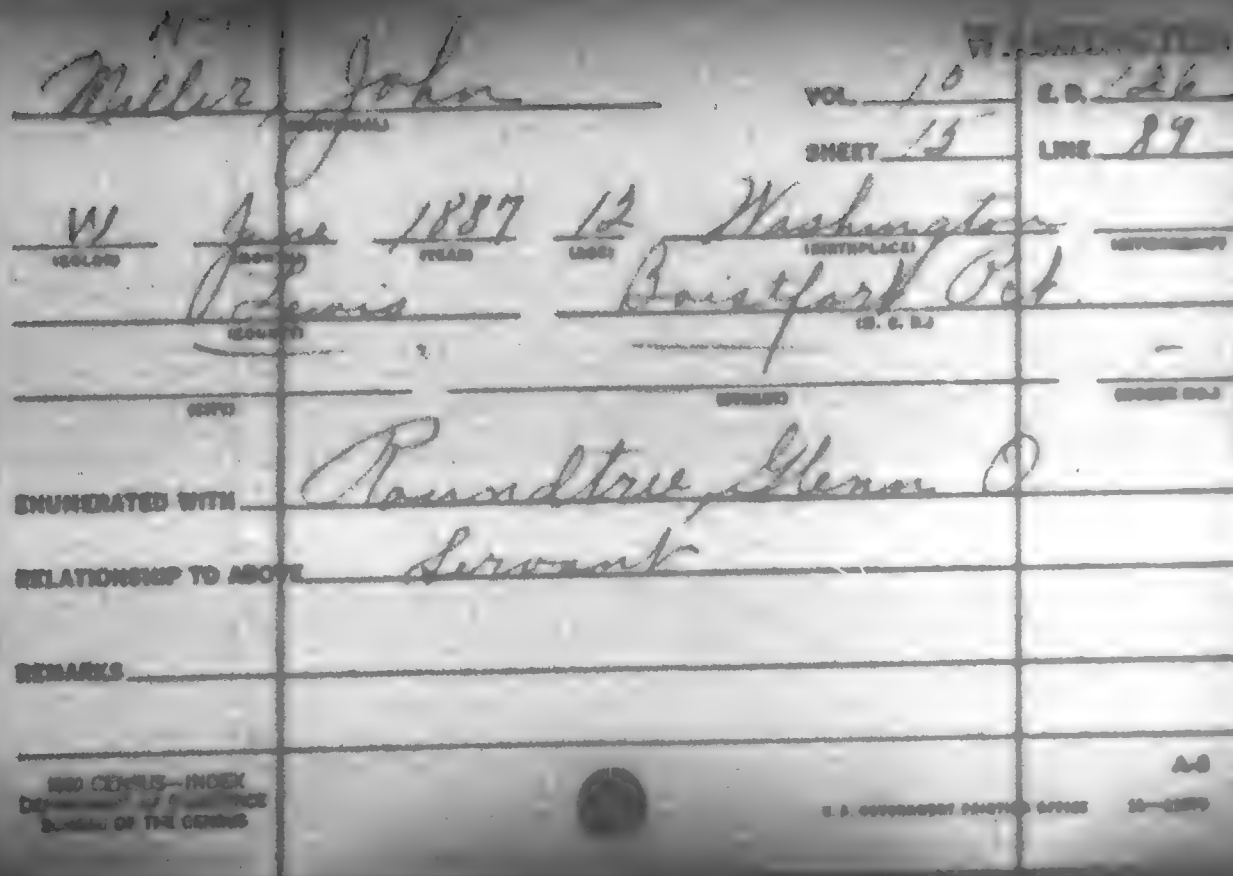 Miller, John
VOL. 10 E. D. 126
(INDIVIDUAL)
SHEET 15 LINE 89
W June 1887 12 Washington
(COLOR) (MONTH) (YEAR) (AGE) (BIRTHPLACE) (CITIZENSHIP)
Lewis Boistfort Pct.
(COUNTY) (M. C. D.)
(CITY) (STREET) (HOUSE NO.)
ENUMERATED WITH Roundtree, Glenn O
RELATIONSHIP TO ABOVE Servant
REMARKS
1900 CENSUS—INDEX
DEPARTMENT OF COMMERCE
BUREAU OF THE CENSUS
A-8
U.S. GOVERNMENT PRINTING OFFICE